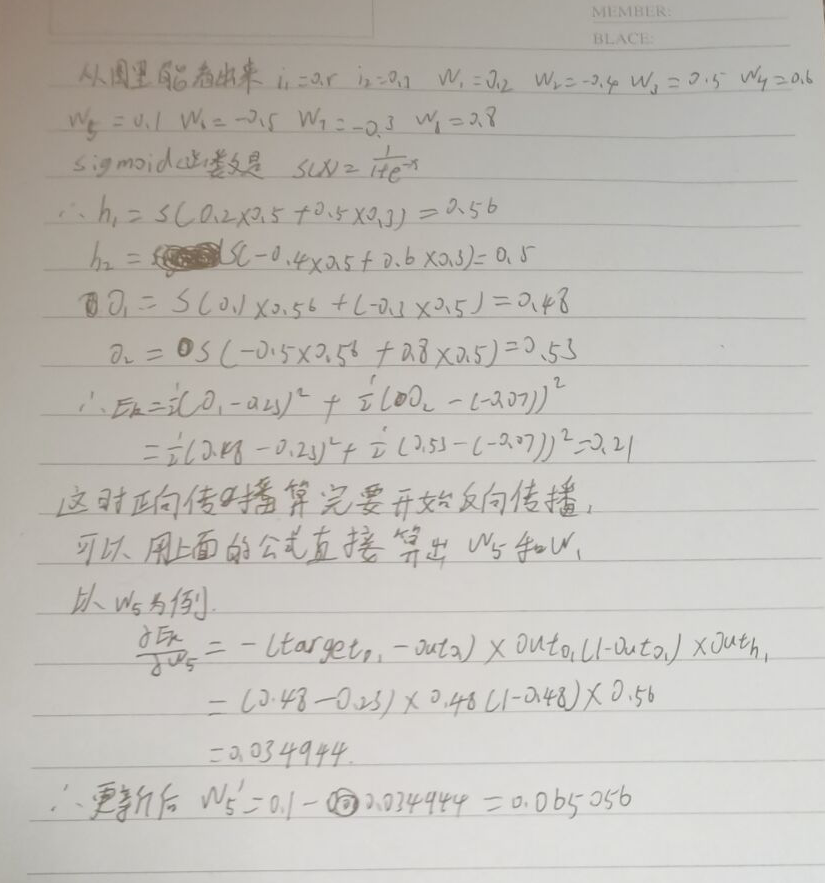 MEMBER:
BLACE:
从图里能看出来 i₁=0.5 i₂=0.3 W₁=0.2 W₂=-0.4 W₃=0.5 W₄=0.6
W₅=0.1 W₆=-0.5 W₇=-0.3 W₈=0.8
sigmoid函数是 S(x)=1/(1+e⁻ˣ)
∴h₁=S(0.2×0.5+0.5×0.3)=0.56
h₂=S(-0.4×0.5+0.6×0.3)=0.5
O₁=S(0.1×0.56+(-0.3×0.5)=0.48
O₂=S(-0.5×0.56+0.8×0.5)=0.53
∴E=½(O₁-0.23)²+½(O₂-(-0.07))²
=½(0.48-0.23)²+½(0.53-(-0.07))²=0.21
这时正向传播算完要开始反向传播,
可以用上面的公式直接算出 W₅和W₁
以W₅为例.
=-(target₀₁-out₀₁)×out₀₁(1-out₀₁)×outh₁
=(0.48-0.23)×0.48(1-0.48)×0.56
=0.034944.
∴更新后 W₅'=0.1-0.034944=0.065056